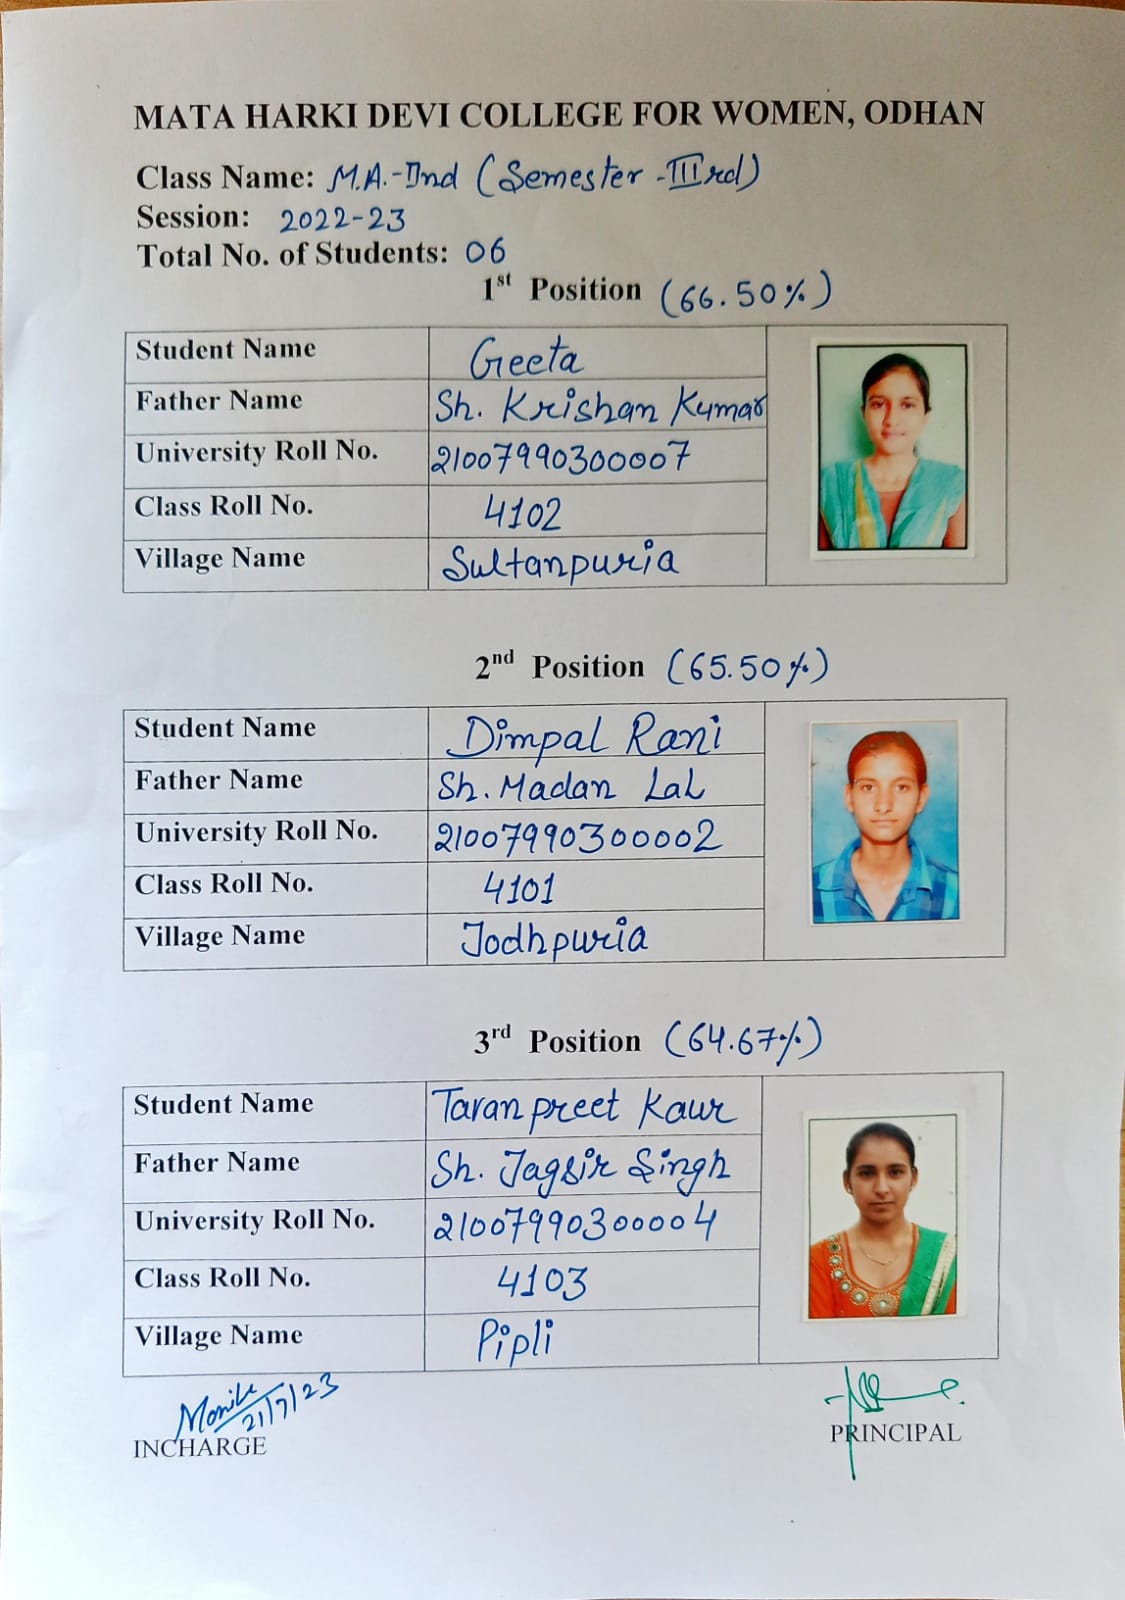 MATA HARKI DEVI COLLEGE FOR WOMEN, ODHAN
Class Name: M.A.-IInd (Semester-IIIrd)
Session: 2022-23
Total No. of Students: 06
1st Position (66.50%)
Student Name Geeta
Father Name Sh. Krishan Kumar
University Roll No. 21007990300007
Class Roll No. 4102
Village Name Sultanpuria
2nd Position (65.50%)
Student Name Dimpal Rani
Father Name Sh. Madan Lal
University Roll No. 21007990300002
Class Roll No. 4101
Village Name Jodhpuria
3rd Position (64.67%)
Student Name Taranpreet Kaur
Father Name Sh. Jagsir Singh
University Roll No. 21007990300004
Class Roll No. 4103
Village Name Pipli
21/7/23
INCHARGE
PRINCIPAL